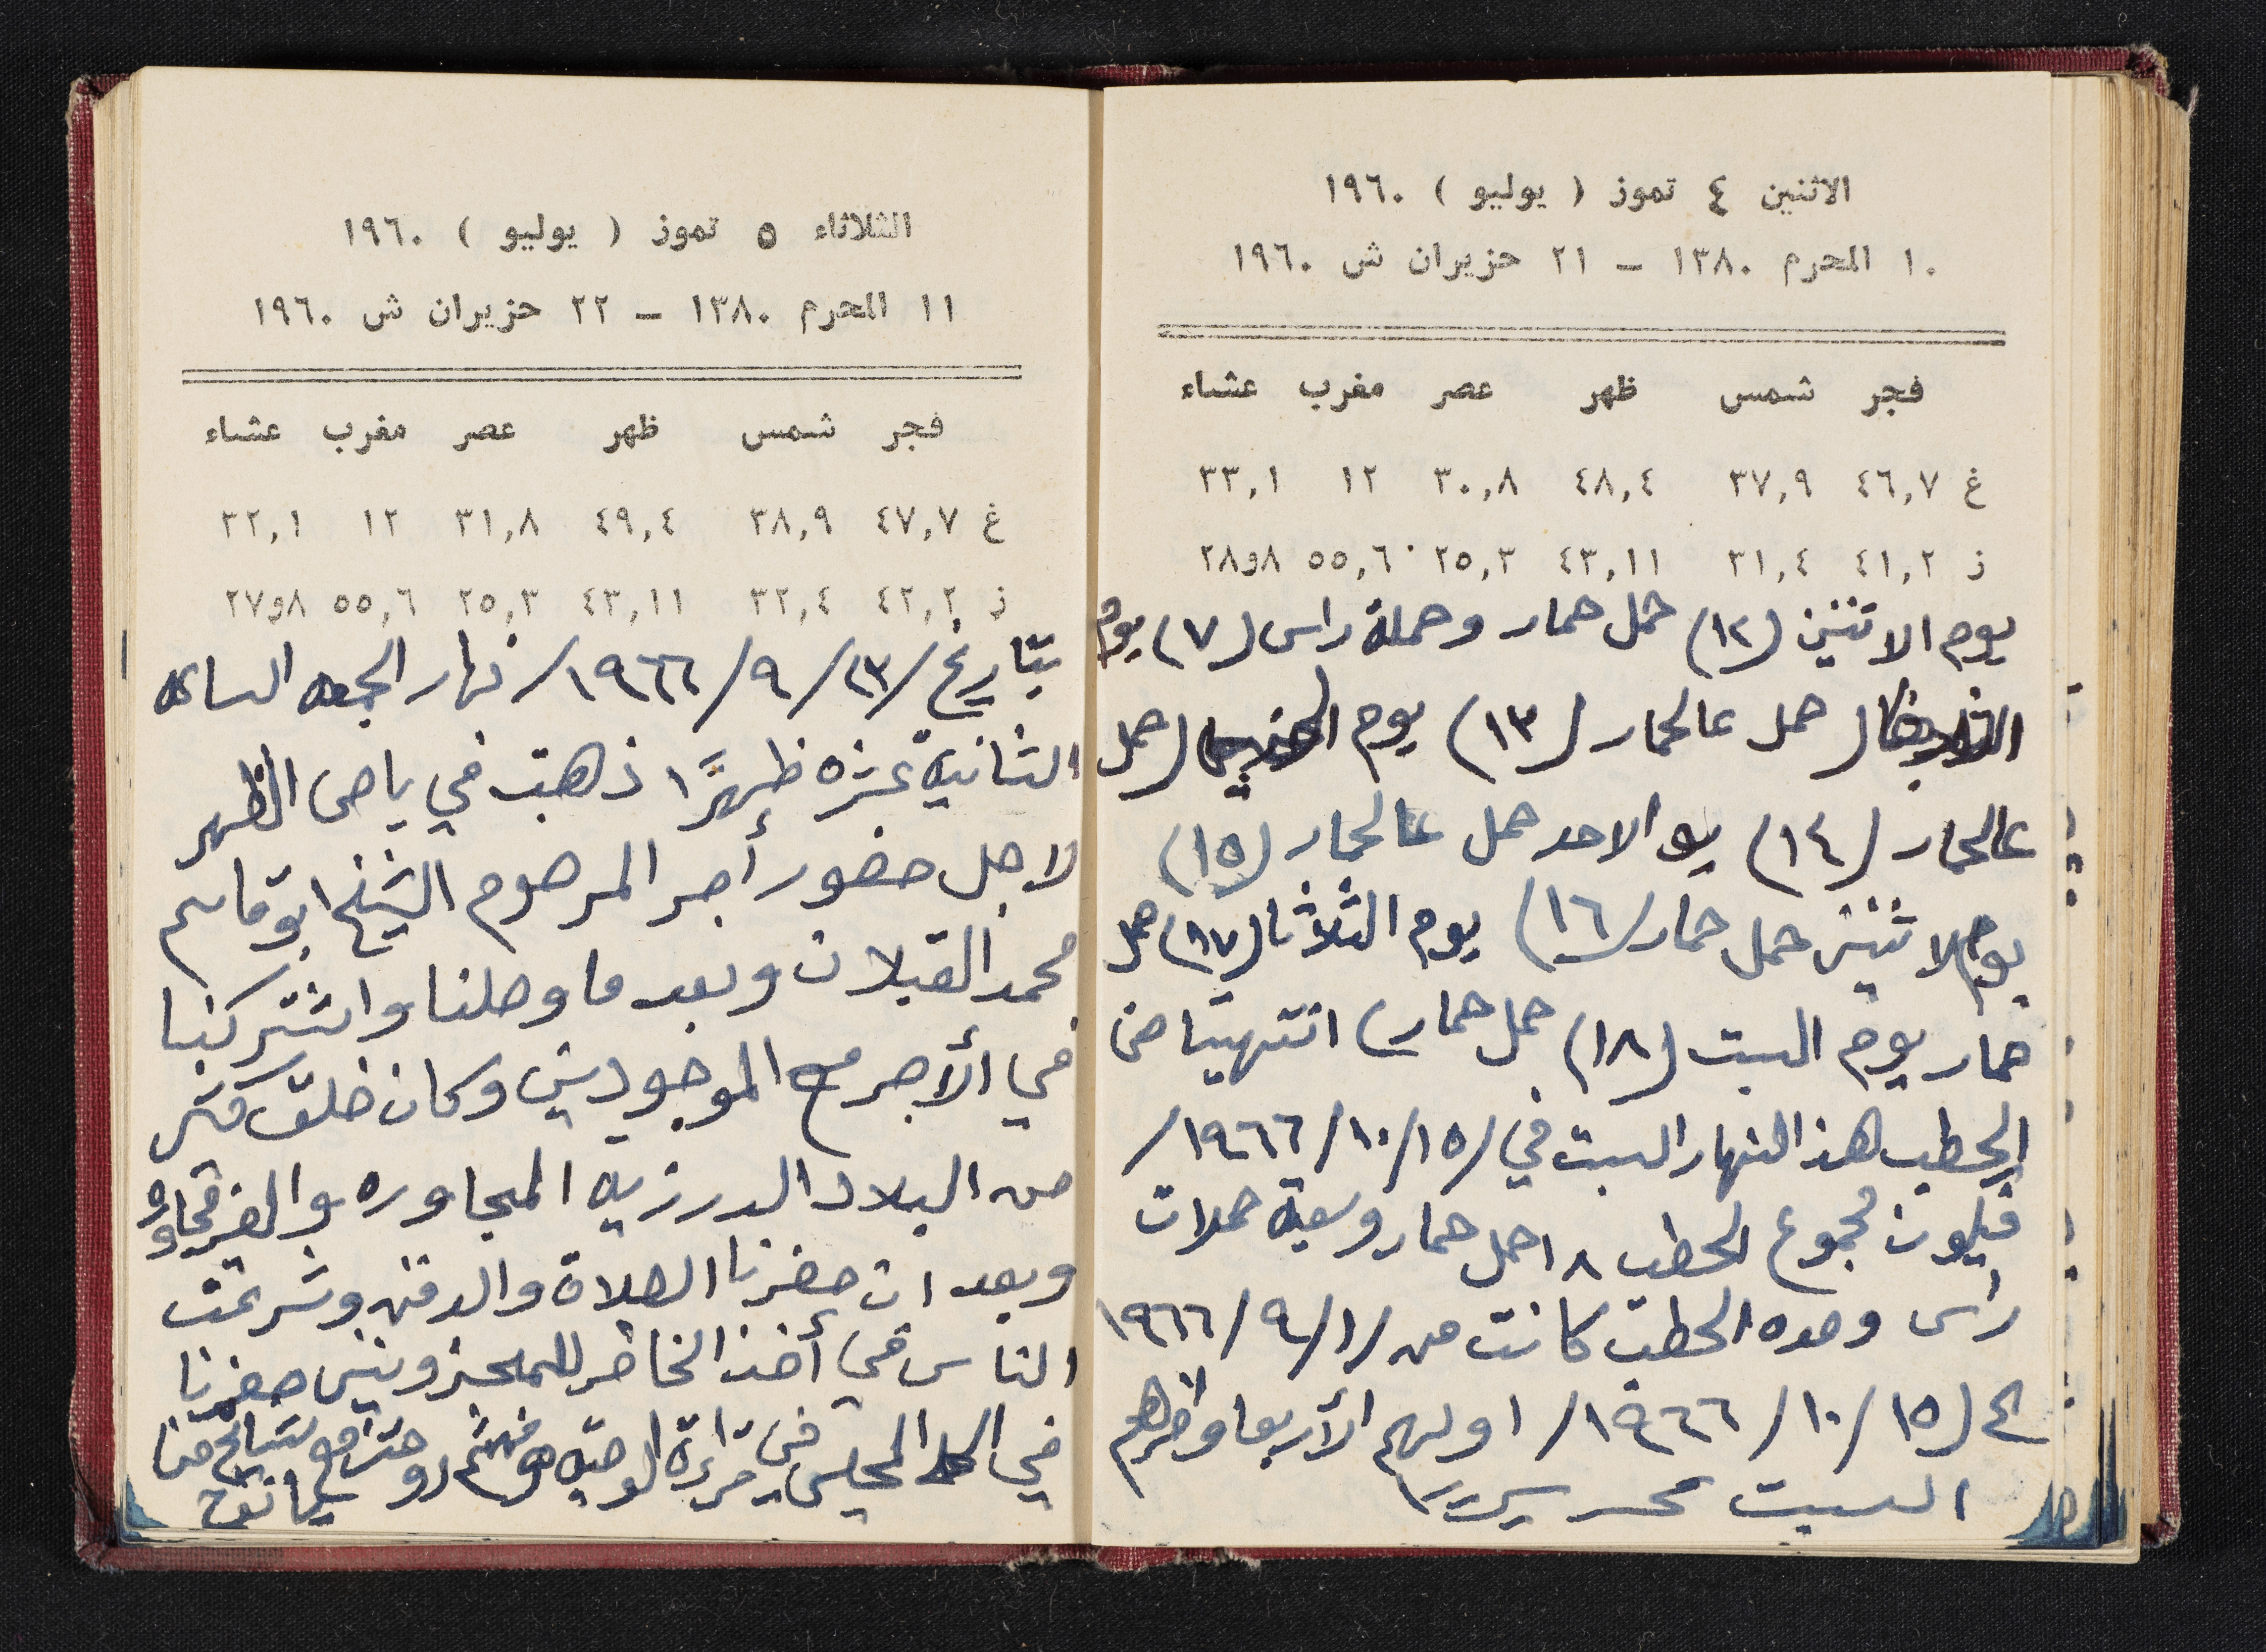 الاثنين ٤ تموز ( يوليو ) ١٩٦٠
١٠ المحرم ١٣٨٠ – ٢١ حزيران ش ١٩٦٠
فجر شمس ظهر عصر مغرب عشاء
غ ٤٦,٧ ٣٧,٩ ٤٨,٤ ٣٠,٨ ١٢ ٣٣,١
ز ٤١,٢ ٣١,٤ ٤٣,١١ ٢٥,٣ ٥٥,٦ ٨و٢٨
يوم الاثنين (١٢) حمل حمار وحملة راس (٧) يوم
حمل عالحمار (١٣) يوم حمل
عالحمار (١٤) يو الاحد حمل عالحمار (١٥)
يوم الاثنين حمل حمار (١٦) يوم الثلاثا (١٧) حمل
حمار يوم السبت (١٨) حمل حمار انتهينا من
الحطب هذا النهار السبت في /١٥/١٠/١٩٦٦/
فيكون مجموع الحطب ١٨ حمل حمار وسبعة حملات
راس وهده الحطب كانت من /١/٩/١٩٦٦
الى /١٥/١٠/١٩٦٦/ اولهم الأربعا واخرهم
السبت
الثلاثاء ٥ تموز ( يوليو ) ١٩٦٠
١١ المحرم ١٣٨٠ – ٢٢ حزيران ش ١٩٦٠
فجر شمس ظهر عصر مغرب عشاء
غ ٤٧,٧ ٣٨,٩ ٤٩,٤ ٣١,٨ ١٢ ٣٢,١
ز ٤٢,٢ ٣٢,٤ ٤٣,١١ ٢٥,٣ ٥٥,٦ ٨و٢٧
بتاريخ /٢٣/٩/١٩٦٦/ نهار الجمعه الساعه
الثانية عشره ظهرًا ذهبت في باص الظهر
لاجل حضور أجر المرحوم الشيخ ابو قاسم
محمد القبلان وبعد ما وصلنا واشتركنا
في الأجر مع الموجودين وكان خلق كثير
من البلاد الدرزيه المجاوره
وبعد ان حضرنا الصلاة والدفن وشرعت
الناس في أخذ الخاطر حضرنا
في المجلس في قراءة الوصيه